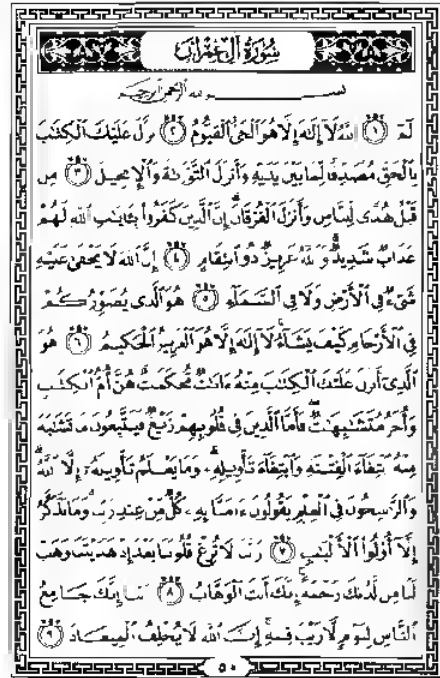 سُورَةُ آلِ عِمْرَانَ
بِسْمِ اللَّهِ الرَّحْمَٰنِ الرَّحِيمِ
الٓمٓ ١ ٱللَّهُ لَآ إِلَٰهَ إِلَّا هُوَ ٱلْحَىُّ ٱلْقَيُّومُ ٢ نَزَّلَ عَلَيْكَ ٱلْكِتَٰبَ
بِٱلْحَقِّ مُصَدِّقًا لِّمَا بَيْنَ يَدَيْهِ وَأَنزَلَ ٱلتَّوْرَىٰةَ وَٱلْإِنجِيلَ ٣ مِن
قَبْلُ هُدًى لِّلنَّاسِ وَأَنزَلَ ٱلْفُرْقَانَ إِنَّ ٱلَّذِينَ كَفَرُوا۟ بِـَٔايَٰتِ ٱللَّهِ لَهُمْ
عَذَابٌ شَدِيدٌ وَٱللَّهُ عَزِيزٌ ذُو ٱنتِقَامٍ ٤ إِنَّ ٱللَّهَ لَا يَخْفَىٰ عَلَيْهِ
شَىْءٌ فِى ٱلْأَرْضِ وَلَا فِى ٱلسَّمَآءِ ٥ هُوَ ٱلَّذِى يُصَوِّرُكُمْ
فِى ٱلْأَرْحَامِ كَيْفَ يَشَآءُ لَآ إِلَٰهَ إِلَّا هُوَ ٱلْعَزِيزُ ٱلْحَكِيمُ ٦ هُوَ
ٱلَّذِىٓ أَنزَلَ عَلَيْكَ ٱلْكِتَٰبَ مِنْهُ ءَايَٰتٌ مُّحْكَمَٰتٌ هُنَّ أُمُّ ٱلْكِتَٰبِ
وَأُخَرُ مُتَشَٰبِهَٰتٌ فَأَمَّا ٱلَّذِينَ فِى قُلُوبِهِمْ زَيْغٌ فَيَتَّبِعُونَ مَا تَشَٰبَهَ
مِنْهُ ٱبْتِغَآءَ ٱلْفِتْنَةِ وَٱبْتِغَآءَ تَأْوِيلِهِۦ وَمَا يَعْلَمُ تَأْوِيلَهُۥٓ إِلَّا ٱللَّهُ
وَٱلرَّٰسِخُونَ فِى ٱلْعِلْمِ يَقُولُونَ ءَامَنَّا بِهِۦ كُلٌّ مِّنْ عِندِ رَبِّنَا وَمَا يَذَّكَّرُ
إِلَّآ أُو۟لُوا۟ ٱلْأَلْبَٰبِ ٧ رَبَّنَا لَا تُزِغْ قُلُوبَنَا بَعْدَ إِذْ هَدَيْتَنَا وَهَبْ
لَنَا مِن لَّدُنكَ رَحْمَةً إِنَّكَ أَنتَ ٱلْوَهَّابُ ٨ رَبَّنَآ إِنَّكَ جَامِعُ
ٱلنَّاسِ لِيَوْمٍ لَّا رَيْبَ فِيهِ إِنَّ ٱللَّهَ لَا يُخْلِفُ ٱلْمِيعَادَ ٩
٥٠